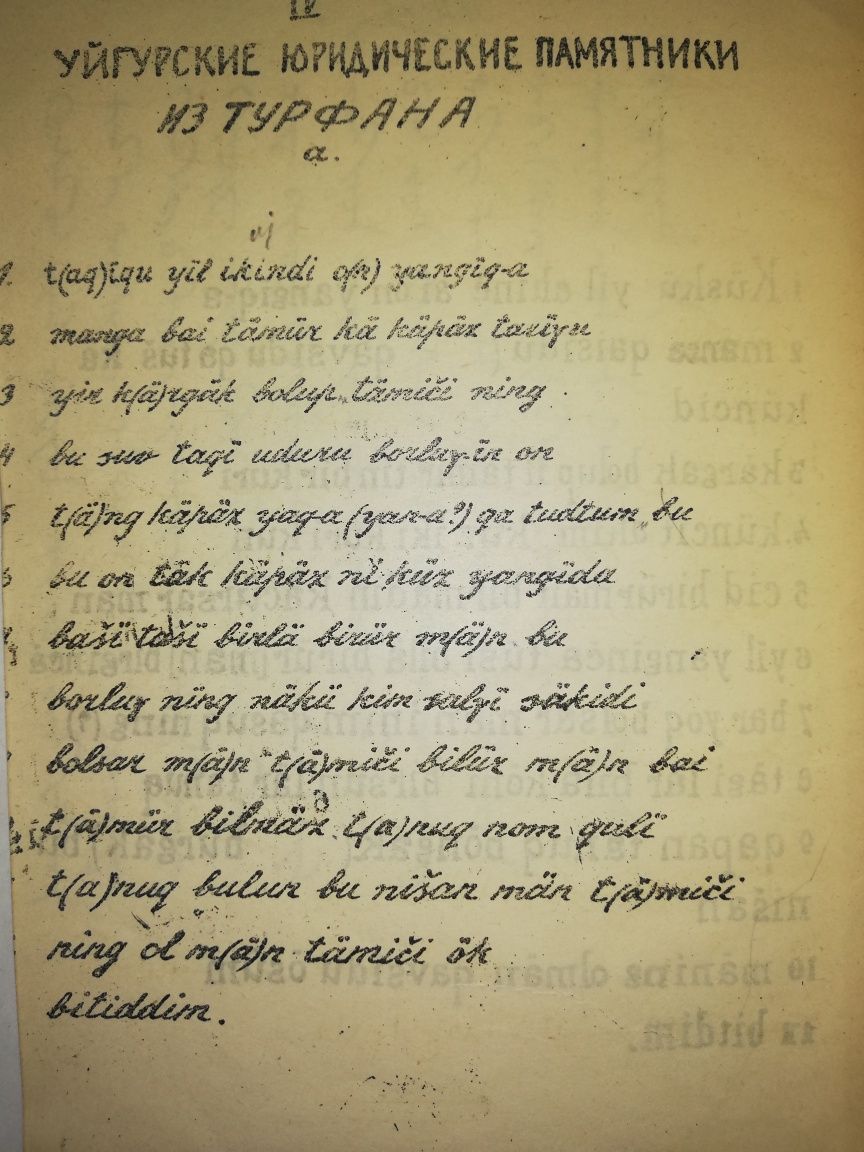 IV
УЙГУРСКИЕ ЮРИДИЧЕСКИЕ ПАМЯТНИКИ
ИЗ ТУРФАНА
а.
1. t(aq)ïqu yïl ikindi o(n) yangïq-a
2 manga bai tämür kä käpäz tarïγu
3 yir k(ä)rgäk bolup tämiči ning
4 bu suv taqï uduru borluγ-ïn on
5 t(ä)ng käpäz yaq-a (yar-a?) qa tudtum bu
bu on täk käpäz ni küz yangïda
bašï tašï birlä birür m(ä)n bu
borluγ nïng näkü kim salγï säkidi
bolsar m(ä)n t(ä)miči bilür m(ä)n bai
t(ä)mür bilmäz t(a)nuq nom qulï
t(a)nuq bulun bu nišan män t(ä)miči
ning ol m(ä)n tämiči ök
bitiddim.